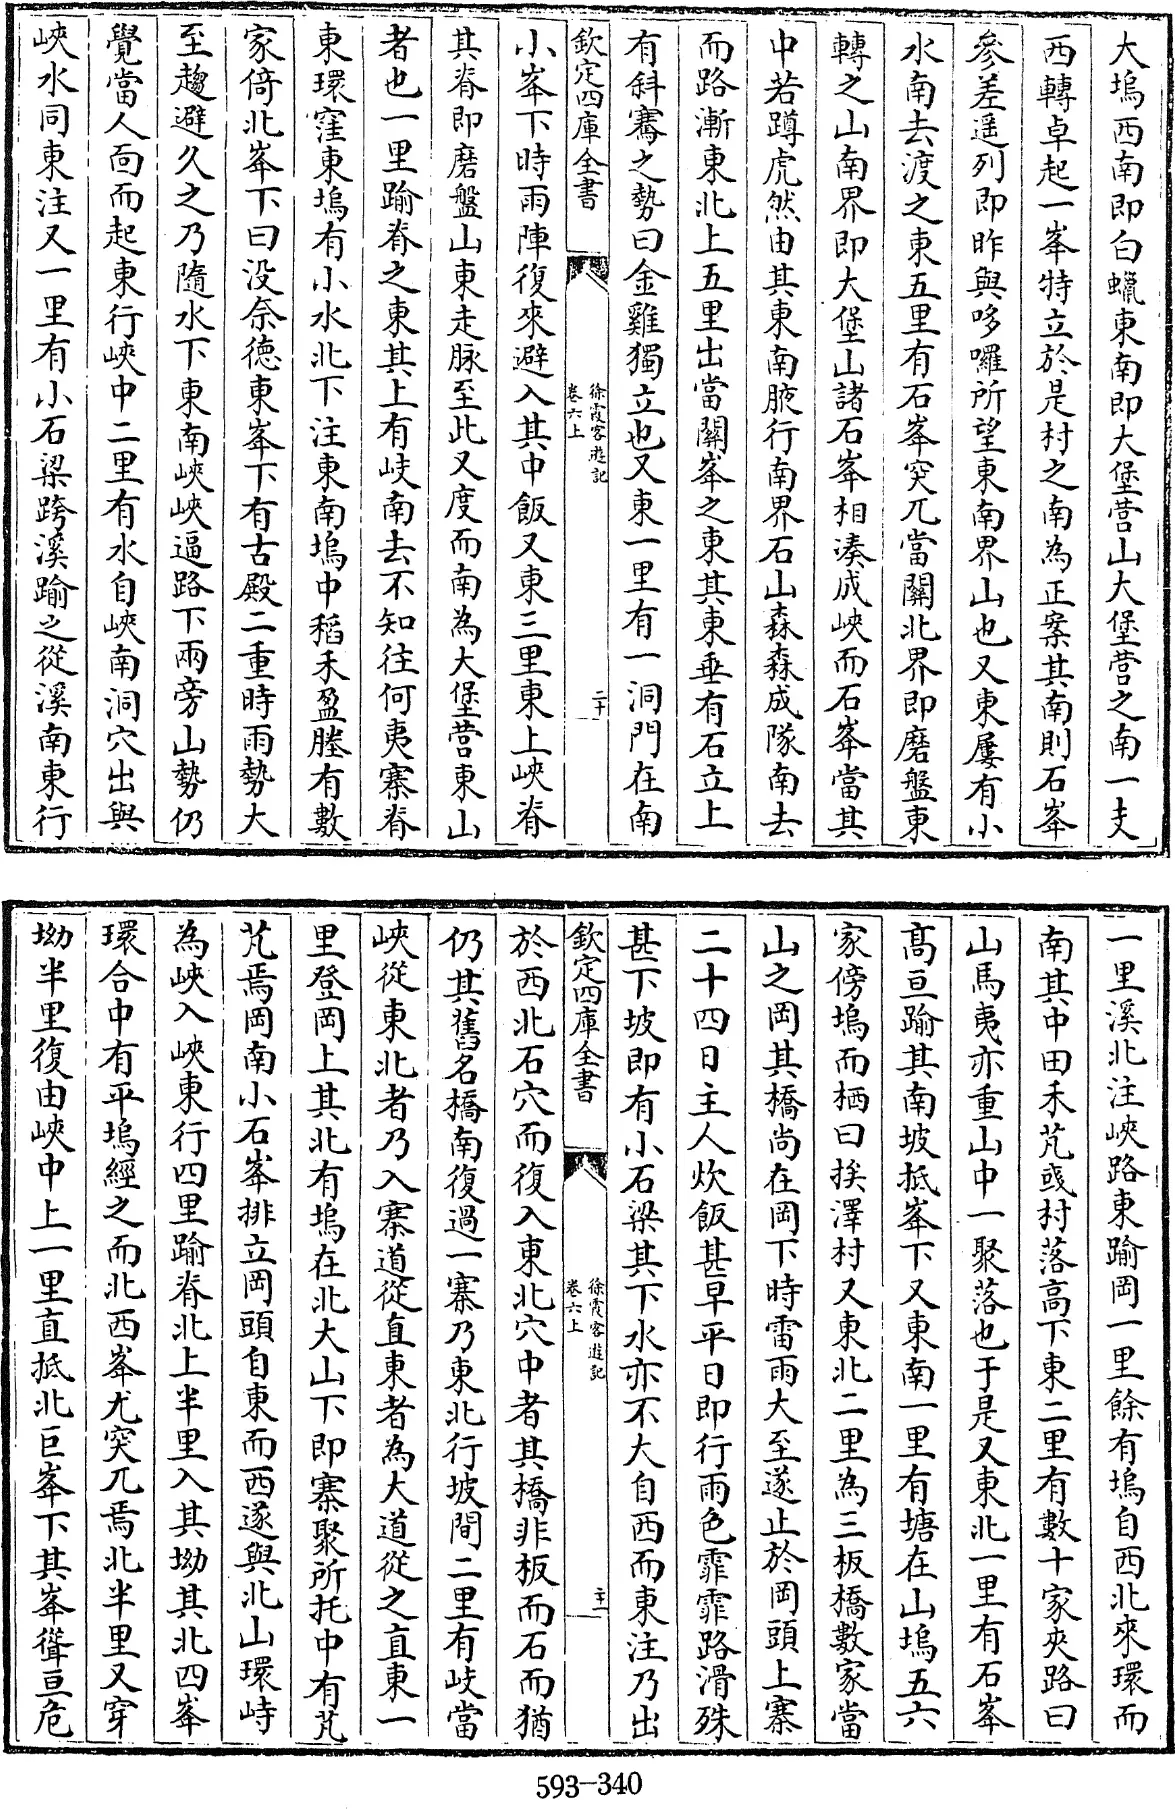 大塢西南即白蠟東南即大堡營山大堡營之南一支
西轉卓起一峯特立於是村之南為正案其南則石峯
參差遥列即昨與哆囉所望東南界山也又東屢有小
水南去渡之東五里有石峯突兀當關北界即磨盤東
轉之山南界即大堡山諸石峯相湊成峽而石峯當其
中若蹲虎然由其東南腋行南界石山森森成隊南去
而路漸東北上五里出當關峯之東其東垂有石立上
有斜騫之勢曰金雞獨立也又東一里有一洞門在南
欽定四庫全書
徐霞客遊記
卷六上
二十
小峯下時雨陣復來避入其中飯又東三里東上峽脊
其脊即磨盤山東走脉至此又度而南為大堡營東山
者也一里踰脊之東其上有岐南去不知往何夷寨脊
東環窪東塢有小水北下注東南塢中稻禾盈塍有數
家倚北峯下曰没奈德東峯下有古殿二重時雨勢大
至趨避久之乃隨水下東南峽峽逼路下兩旁山勢仍
覺當人面而起東行峽中二里有水自峽南洞穴出與
峽水同東注又一里有小石梁跨溪踰之從溪南東行
一里溪北注峽路東踰岡一里餘有塢自西北來環而
南其中田禾芃彧村落高下東二里有數十家夾路曰
山馬夷亦重山中一聚落也于是又東北一里有石峯
高亘踰其南坡抵峯下又東南一里有塘在山塢五六
家傍塢而栖曰挨澤村又東北二里為三板橋數家當
山之岡其橋尚在岡下時雷雨大至遂止於岡頭上寨
二十四日主人炊飯甚早平日即行雨色霏霏路滑殊
甚下坡即有小石梁其下水亦不大自西而東注乃出
欽定四庫全書
徐霞客遊記
卷六上
二十一
於西北石穴而復入東北穴中者其橋非板而石而猶
仍其舊名橋南復過一寨乃東北行坡間二里有岐當
峽從東北者乃入寨道從直東者為大道從之直東一
里登岡上其北有塢在北大山下即寨聚所托中有芃
芃焉岡南小石峯排立岡頭自東而西遂與北山環峙
為峽入峽東行四里踰脊北上半里入其坳其北四峯
環合中有平塢經之而北西峯尤突兀焉北半里又穿
坳半里復由峽中上一里直抵北巨峯下其峯聳亘危
593-340